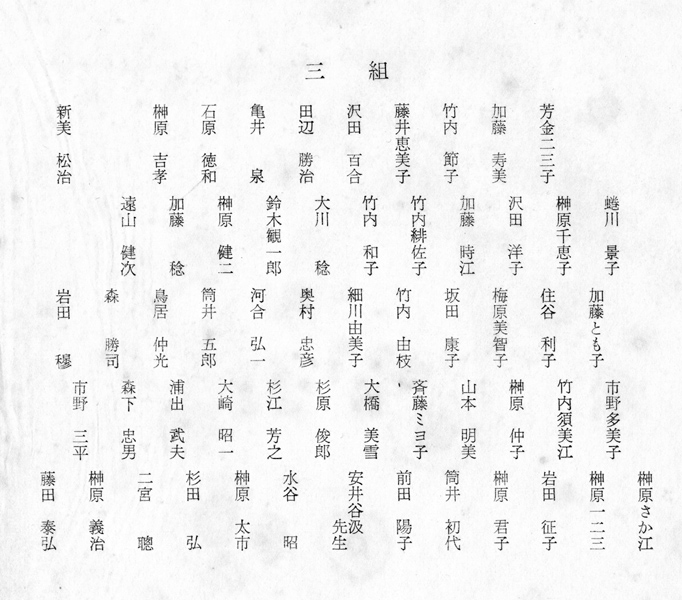 三 組
芳金二三子
加藤 寿美
竹内 節子
藤井恵美子
沢田 百合
田辺 勝治
亀井 泉
石原 徳和
榊原 吉孝
新美 松治
蜷川 景子
榊原千恵子
沢田 洋子
加藤 時江
竹内緋佐子
竹内 和子
大川 稔
鈴木観一郎
榊原 健二
加藤 稔
遠山 健次
加藤とも子
住谷 利子
梅原美智子
坂田 康子
竹内 由枝
細川由美子
奥村 忠彦
河合 弘一
筒井 五郎
鳥居 仲光
森 勝司
岩田 穆
市野多美子
竹内須美江
榊原 仲子
山本 明美
斉藤ミヨ子
大橋 美雪
杉原 俊郎
杉江 芳之
大崎 昭一
浦出 武夫
森下 忠男
市野 三平
榊原さか江
榊原一二三
岩田 征子
榊原 君子
筒井 初代
前田 陽子
安井谷汲先生
水谷 昭
榊原 太市
杉田 弘
二宮 聰
榊原 義治
藤田 泰弘